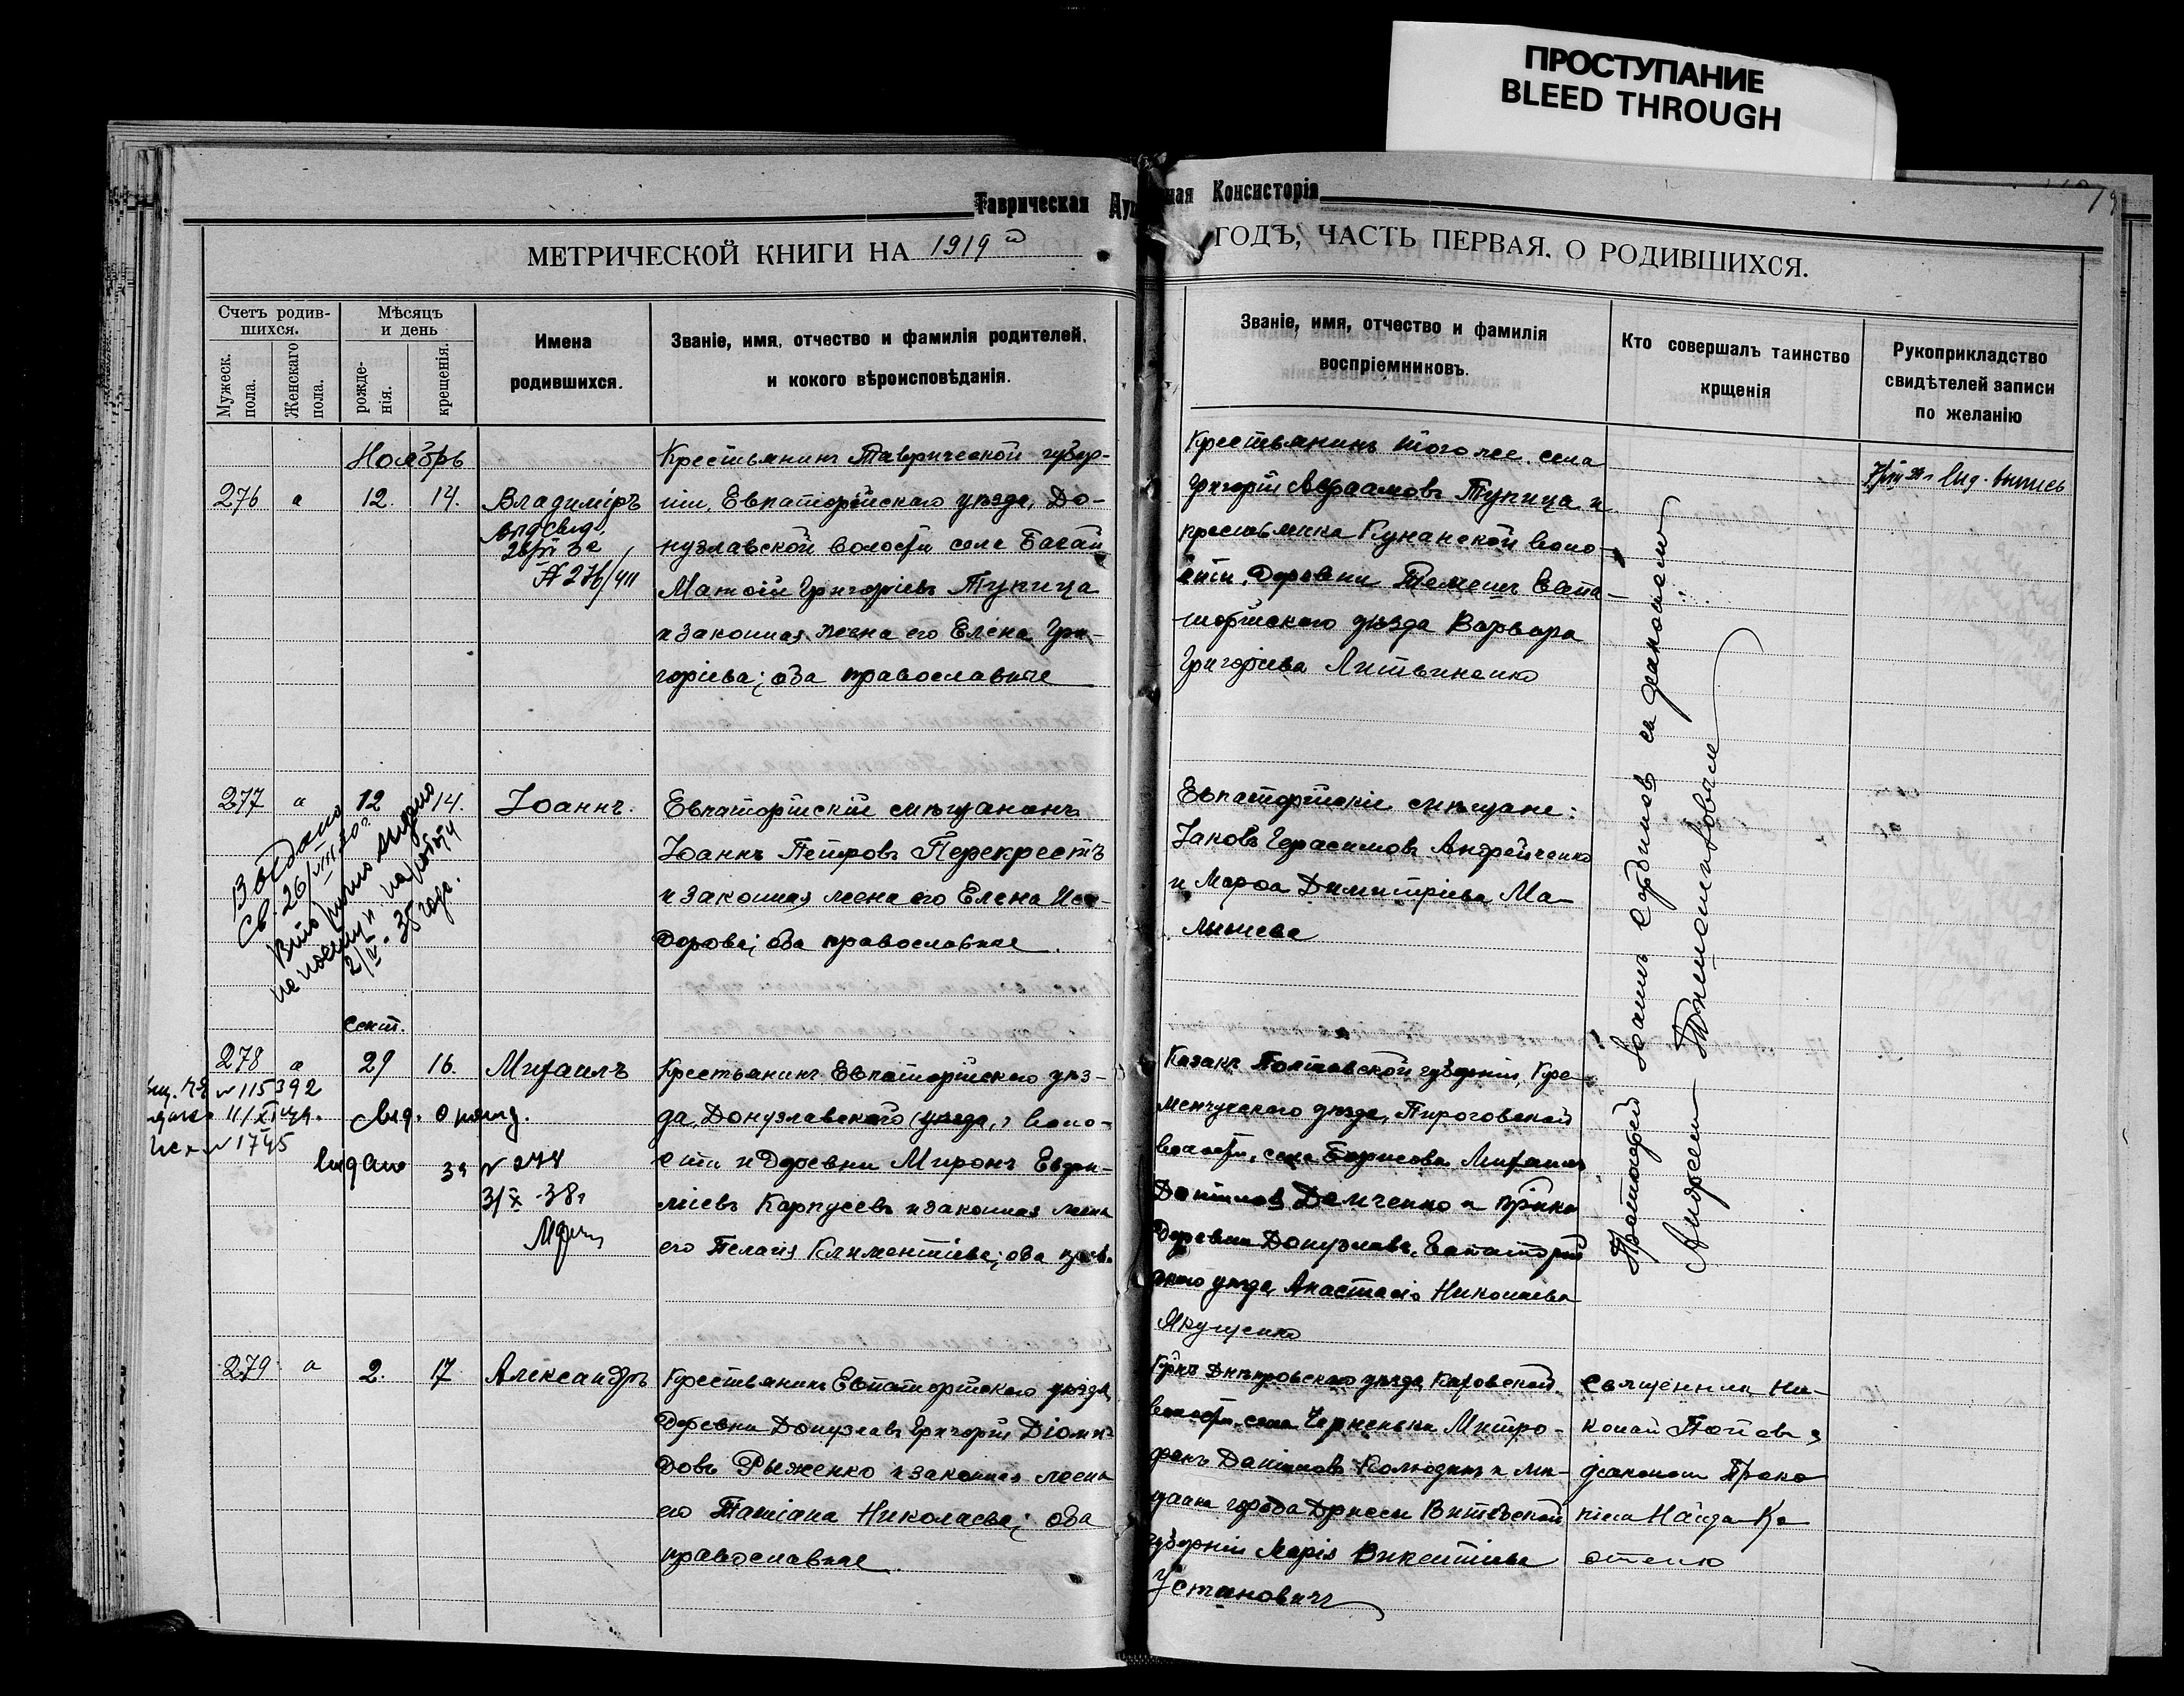 ПРОСТУПАНИЕ
BLEED THROUGH
Таврическая Духовная Консисторія
МЕТРИЧЕСКОЙ КНИГИ НА 1919й ГОДЪ, ЧАСТЬ ПЕРВАЯ, О РОДИВШИХСЯ.
Счетъ родив-
шихся.
Мужеск.
пола.
Женскаго
пола.
Мѣсяцъ
и день
рожде-
нія.
крещенія.
Имена
родившихся.
Званіе, имя, отчество и фамилія родителей,
и кокого вѣроисповѣданія.
Званіе, имя, отчество и фамилія
воспріемниковъ.
Кто совершалъ таинство
крщенія
Рукоприкладство
свидѣтелей записи
по желанію
Ноябрь
276 а 12. 14. Владиміръ
Крестьянинъ Таврической губер-
ніи, Евпаторійскаго уѣзда, До-
нузлавской волости села Багай
Матѳій Григоріевъ Тупица
и законная жена его Елена Гри-
горіева; оба православные
Крестьянинъ того же села
Григорій Авраамовъ Тупица и
крестьянка Кунанской воло-
сти, деревни Темешъ Евпа-
торійскаго уѣзда Варвара
Григоріева Литвиненко
277 а 12 14. Іоаннъ.
Выдано
Св. 26/VII 20г
2/IV. 35 года.
Евпаторійскій мѣщанинъ
Іоаннъ Петровъ Перекрестъ
и законная жена его Елена Иси-
дорова; оба православные.
Евпаторійскіе мѣщане:
Іаковъ Герасимовъ Андрейченко
и Марѳа Димитріева Ма-
лышева
Протоіерей Іоаннъ Сербиновъ съ діакономъ
Андреемъ
сент.
278 а 29 16. Михаилъ
№ 115392
№ 1745
выдано за № 274
3/X-38г
Крестьянинъ Евпаторійскаго уѣз-
да, Донузлавского (уезда,) воло-
сти и деревни Миронъ Евдок-
иміевъ Карпусевъ и законная жена
его Пелагія Климентіева; оба прав.
Казакъ Полтавской губерніи, Кре-
менчугскаго уѣзда, Пироговской
волости, села Борисова Михаилъ
Даніиловъ Демченко и кр-нка
деревни Донузлавъ, Евпаторій
скаго уѣзда Анастасія Николаева
Якущенко
279 а 2. 17 Александръ
Крестьянинъ Евпаторійскаго уѣзда,
деревни Донузлавъ Григорій Діоми-
довъ Рыженко и законная жена
его Татіана Николаева; оба
православные.
Кр-нъ Днѣпровскаго уѣзда Каховской
волости, села Черненьки Митро-
фанъ Даніиловъ Колюдинъ и мѣ-
щанка города Дриссы Витебской
губерніи Марія Викентіева
Устиновичъ
Священникъ Ни-
колай Попов съ
діакономъ Проко
піемъ